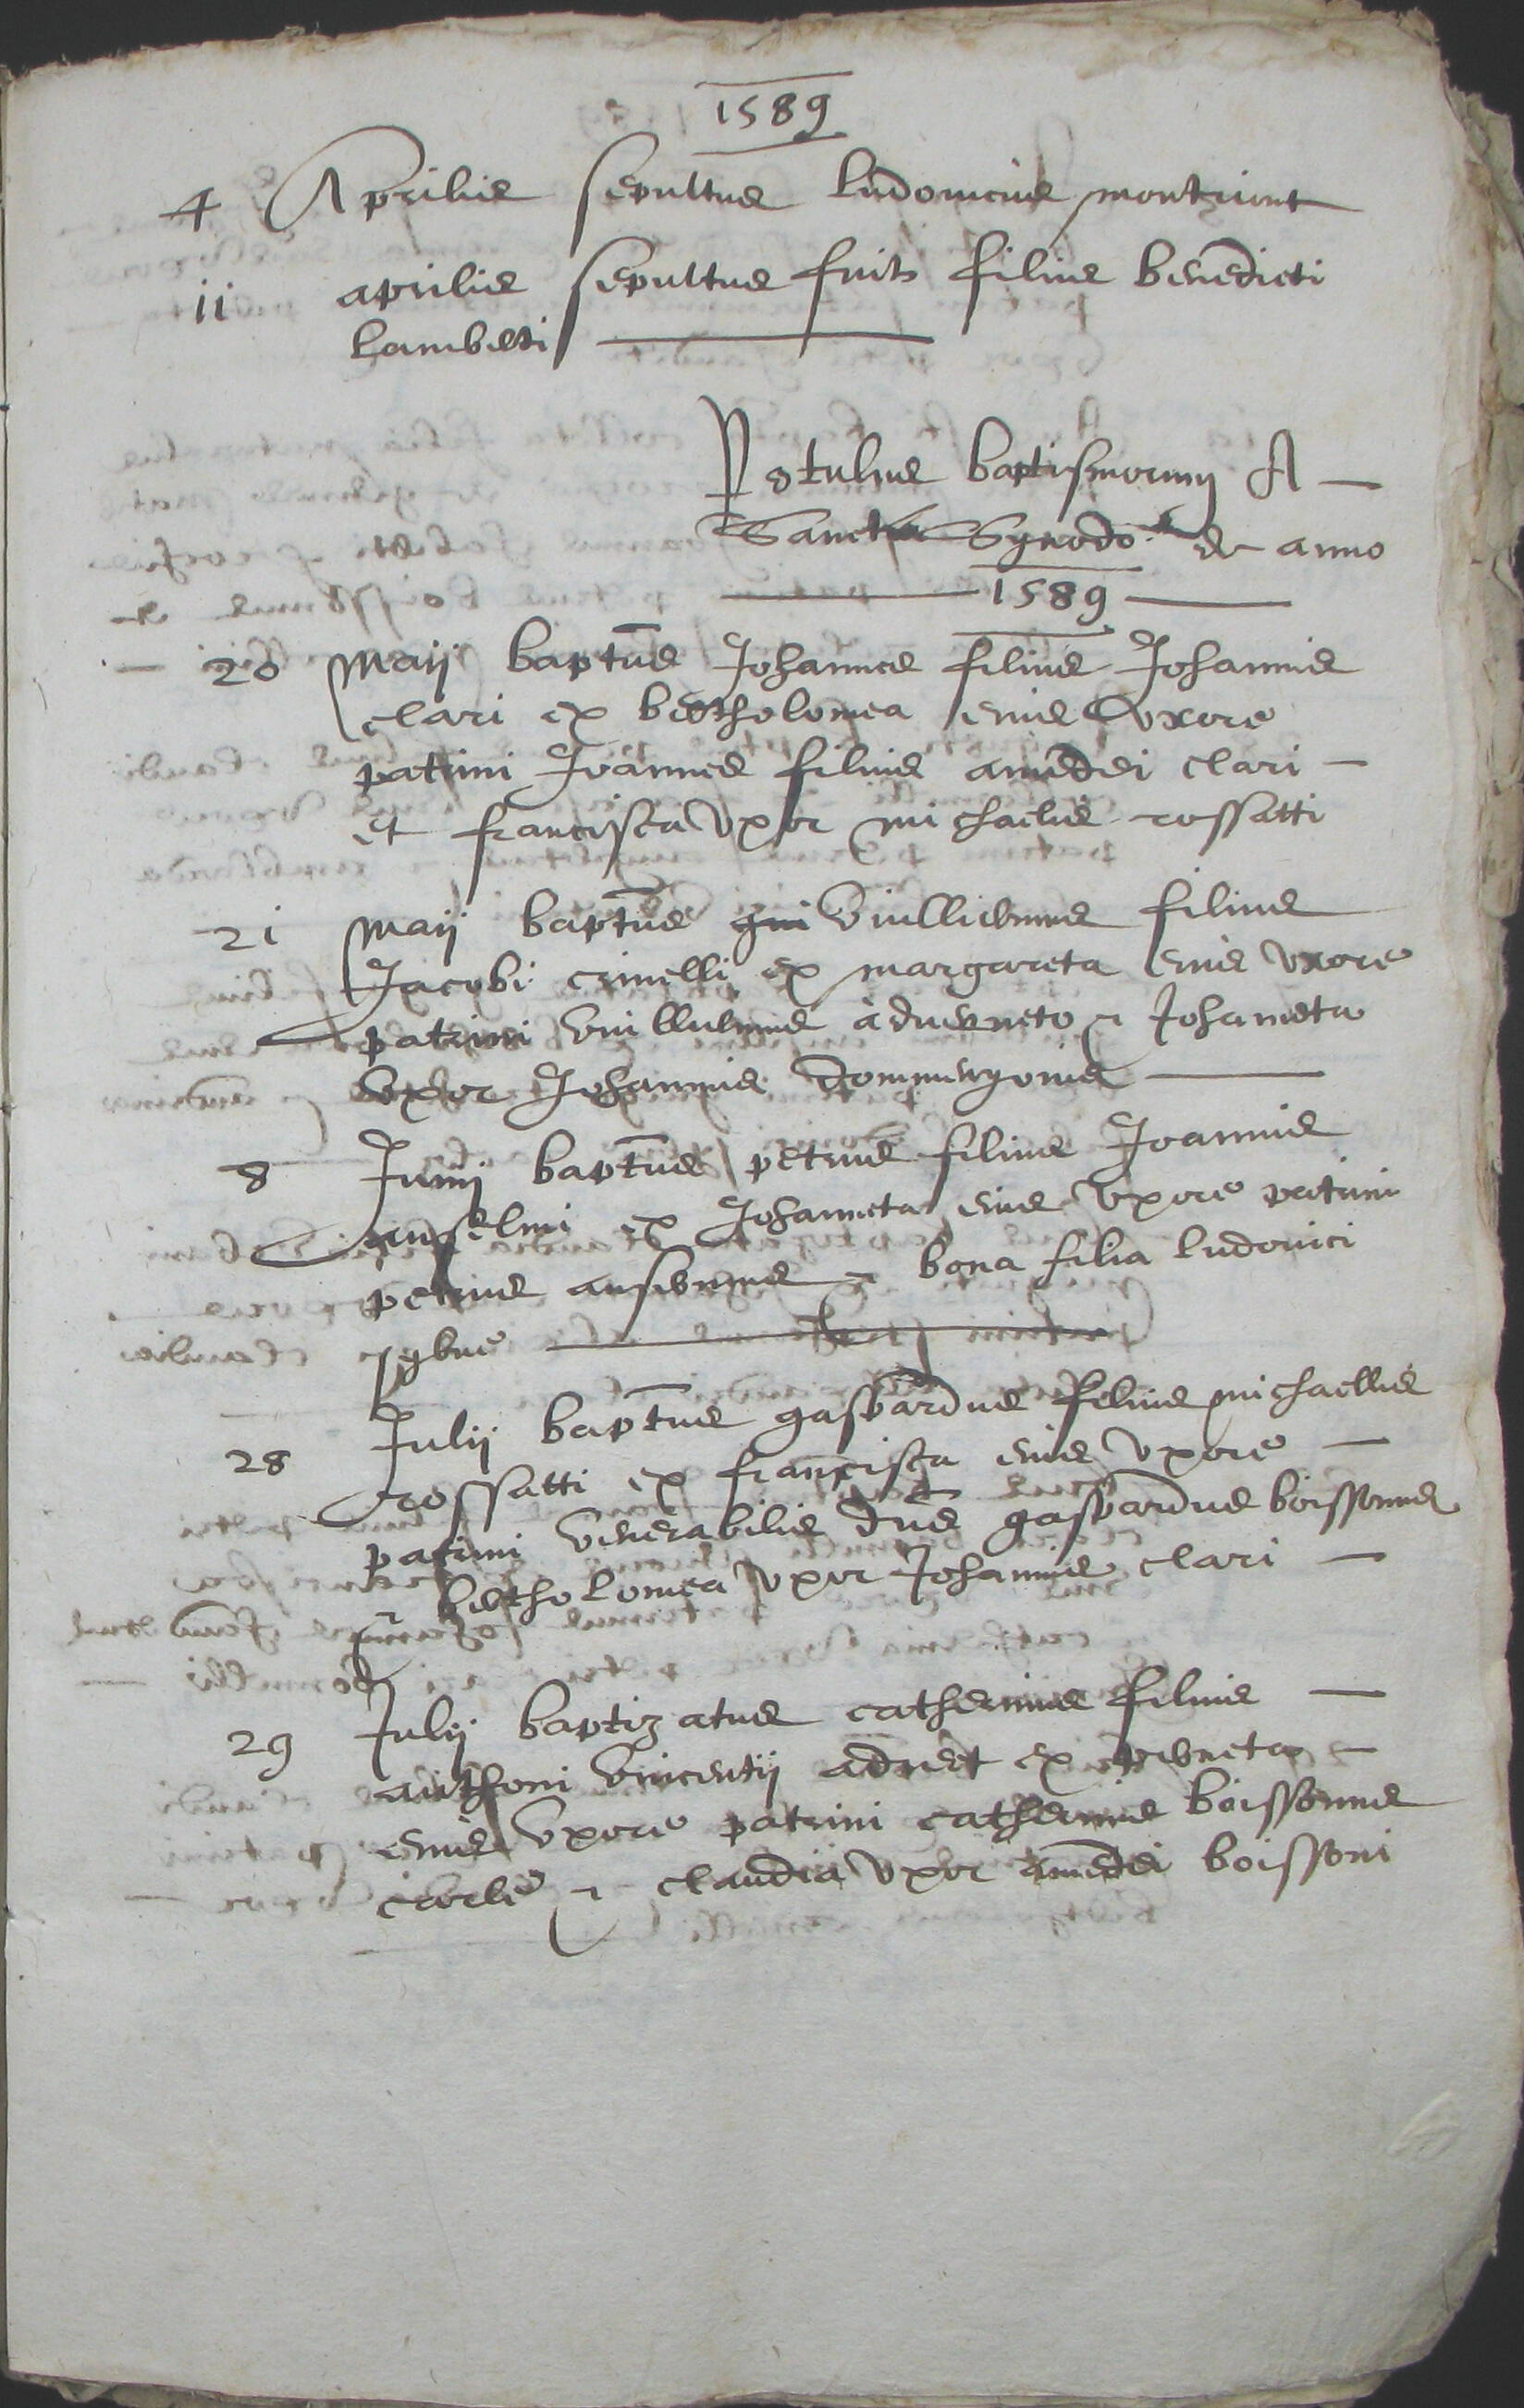 1589
4 Aprilis sepultus ludovicus montziont
11 aprilis sepultus fuit filius benedicti
Lamberti
Rotulus baptismorum A
Sancta Synodo de anno
1589
20 maij baptus Johannes filius Johannis
clari ex bertholomea eius uxore
patrini Joannes filius amedei clari
et francisca uxor michaelis rossatti
21 maij baptus gui Vuilliermus filius
Jacobi crinelli ex margareta eius uxore
patrini Vuillielmus aduerneto & Johaneta
uxor Johannis dommengonis
8 Junij baptus petrus filius Joannis
anselmi ex Johanneta eius uxore patrini
petrus ansermus & bona filia ludovici
28 Julij baptus gaspardus filius michaellis
rossatti ex francisca eius uxore
patrini venerabilis dns gaspardus boissonus
& bertholomea uxor Johannis clari
29 Julij baptizatus catherinus filius
anthoni vincentij aduet ex perneta
eius uxore patrini catherinus boissonus
& claudia uxor amedei boissoni